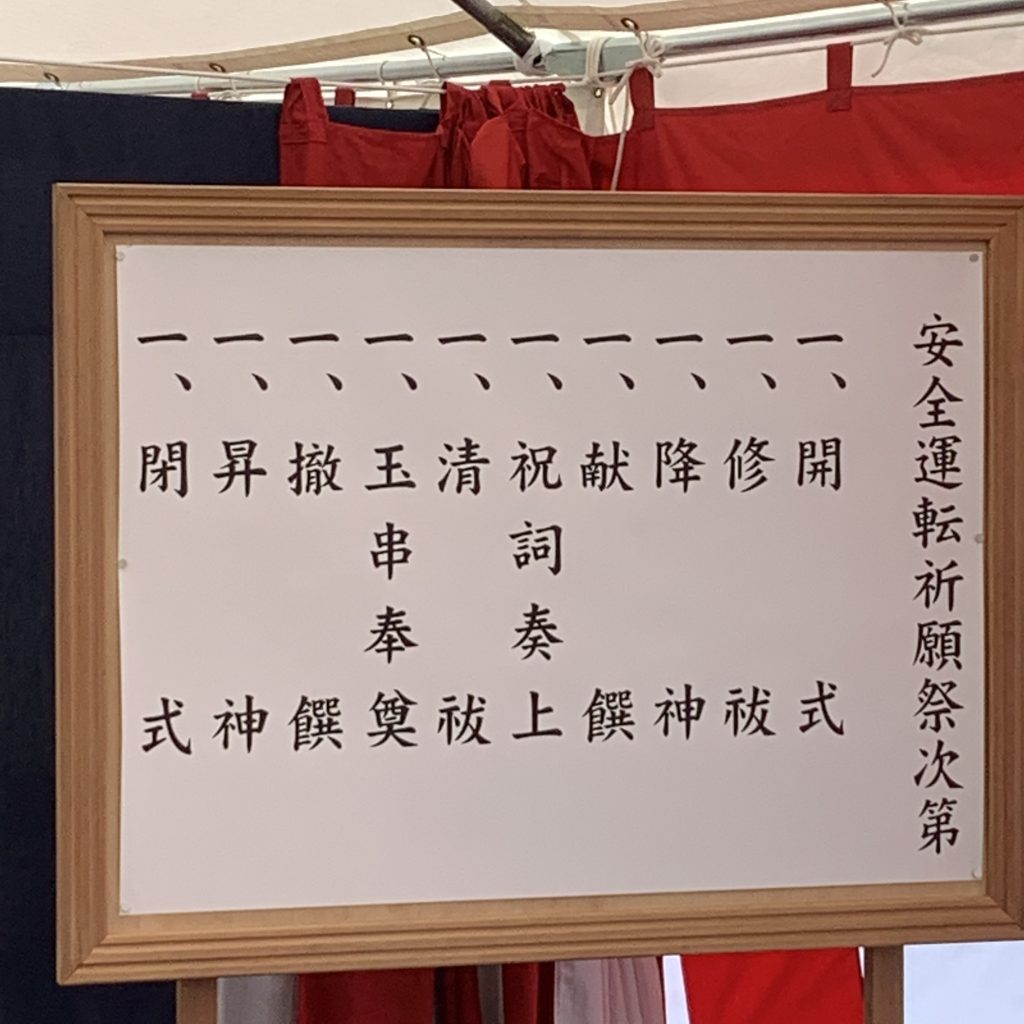 安全運転祈願祭次第
一、開式
一、修祓
一、降神
一、献饌
一、祝詞奏上
一、清祓
一、玉串奉奠
一、撤饌
一、昇神
一、閉式